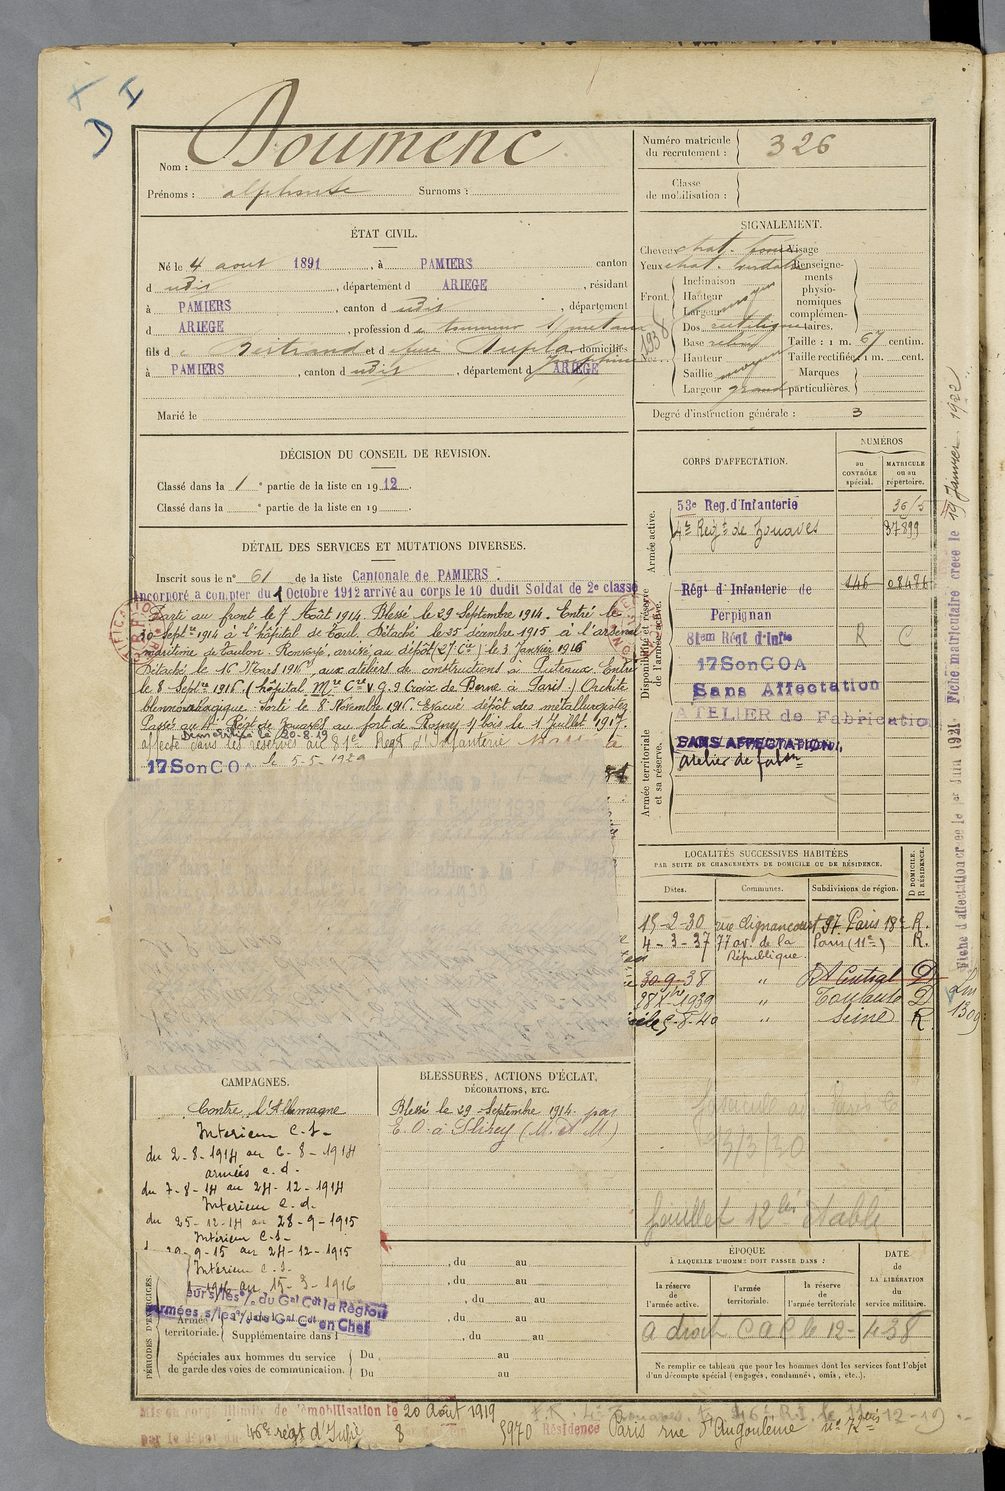 D I
Nom : Doumenc
Prénoms : alphonse Surnoms :
Numéro matricule
du recrutement : 326
Classe
de mobilisation :
ÉTAT CIVIL.
Né le 4 aout 1891, à PAMIERS canton
d udis, département d ARIEGE, résidant
à PAMIERS canton d udis, département
d ARIEGE, profession d e tourneur s/ metaux
fils d e Bertrand et d e feue Dupla domiciliés
à PAMIERS, canton d udis, département d ARIEGE
Josephine
Marié le
SIGNALEMENT.
Cheveux chat. foncé
Yeux chat.
Front.
Inclinaison
Hauteur
Largeur moyen
Dos rectiligne
Base
Hauteur
Saillie moyen
Largeur grand
1938
Visage
Renseigne-
ments
physio-
nomiques
complémen-
taires.
Taille : 1 m. 67 centim.
Taille rectifiée 1 m. cent.
Marques
particulières.
Degré d'instruction générale : 3
DÉCISION DU CONSEIL DE REVISION.
Classé dans la 1 e partie de la liste en 1912.
Classé dans la e partie de la liste en 19
DÉTAIL DES SERVICES ET MUTATIONS DIVERSES.
Inscrit sous le n° 61 de la liste Cantonale de PAMIERS.
Incorporé a compter du 1 Octobre 1912 arrivé au corps le 10 dudit Soldat de 2e classe
Parti au front le 7 Août 1914. Blessé le 29 Septembre 1914. Entré le
30 Septbre 1914 à l'hôpital de Toul. Détaché le 25 décembre 1915 à l'arsenal
maritime de Toulon. Renvoyé, arrivé au dépôt (27 Cie) le 3 Janvier 1916
Détaché le 16 Mars 1916, aux ateliers de constructions à Puteaux. Entré
le 8 Septbre 1916 (hôpital Mre Cre V.G. 9 Croix de Berne à Paris.) Orchite
blennorragique. Sorti le 8 Novembre 1916. Evacué dépôt des métallurgistes
Passé au 4e Régt de Zouaves au fort de Rosny s/ bois le 1 Juillet 1917.
Démobilisé le 20-8-19
affecté dans les réserves au 81e Regt d'Infanterie
17SonCOA le 5-5-1929
CORPS D'AFFECTATION.
NUMÉROS
au
CONTRÔLE
spécial.
MATRICULE
ou au
répertoire.
Armée active.
53e Reg.d'Infanterie
4e Regt de Zouaves 37899
Disponibilité et réserve
de l'armée active.
Régt d'Infanterie de 146 08486
Perpignan
81em Régt d'Infie R C
17SonCOA
Sans Affectation
ATELIER de Fabrication
Armée territoriale
et sa réserve.
SANS AFFECTATION.
atelier de fabon
LOCALITÉS SUCCESSIVES HABITÉES
PAR SUITE DE CHANGEMENTS DE DOMICILE OU DE RÉSIDENCE.
Dates. Communes. Subdivisions de région.
D DOMICILE.
R RÉSIDENCE.
15-2-30 rue Clignancourt 97 Paris 18e R.
4-3-37 77 av. de la Paris (11e) R.
République.
30-9-38 " Bt Central D
28 Xbre 1939 " Toulouse D
5-8-40 " Seine R
23/3/30
feuillet 12 bis établi
CAMPAGNES.
Contre l'Allemagne
Interieur C.S.
du 2-8-1914 au 6-8-1914
armées c.d.
du 7-8-14 au 24-12-1914
Interieur c.d.
du 25-12-14 au 28-9-1915
Intérieur C.S.
29-9-15 au 24-12-1915
Intérieur C.S.
1-1916 au 15-3-1916
eurs/les % du Gal Cdt la Région
Armées s/les % du Gal Cdt en Chef
PÉRIODES D'EXERCICES.
Armée
territoriale.
Supplémentaire dans l
Spéciales aux hommes du service
de garde des voies de communication.
BLESSURES, ACTIONS D'ÉCLAT,
DÉCORATIONS, ETC.
Blessé le 29 Septembre 1914. par
E.O. à Slirey (M. et M.)
, du au
, du au
, du au
, du au
, du au
Du au
Du au
ÉPOQUE
À LAQUELLE L'HOMME DOIT PASSER DANS :
la réserve
de
l'armée active.
l'armée
territoriale.
la réserve
de
l'armée territoriale
DATE
de
LA LIBÉRATION
du
service militaire.
a droit C A C le 12-4-38
Ne remplir ce tableau que pour les hommes dont les services font l'objet
d'un décompte spécial (engagés, condamnés, omis, etc.).
Mis en congé illimité de démobilisation le 20 Août 1919
par le dépôt du 46e régt d'Infie 8 5970 Résidence Paris rue d'Angouleme no 72
Fiche d'affectation créée le 1er Juin 1921 - Fiche matriculaire créée le 19 Janvier 1922